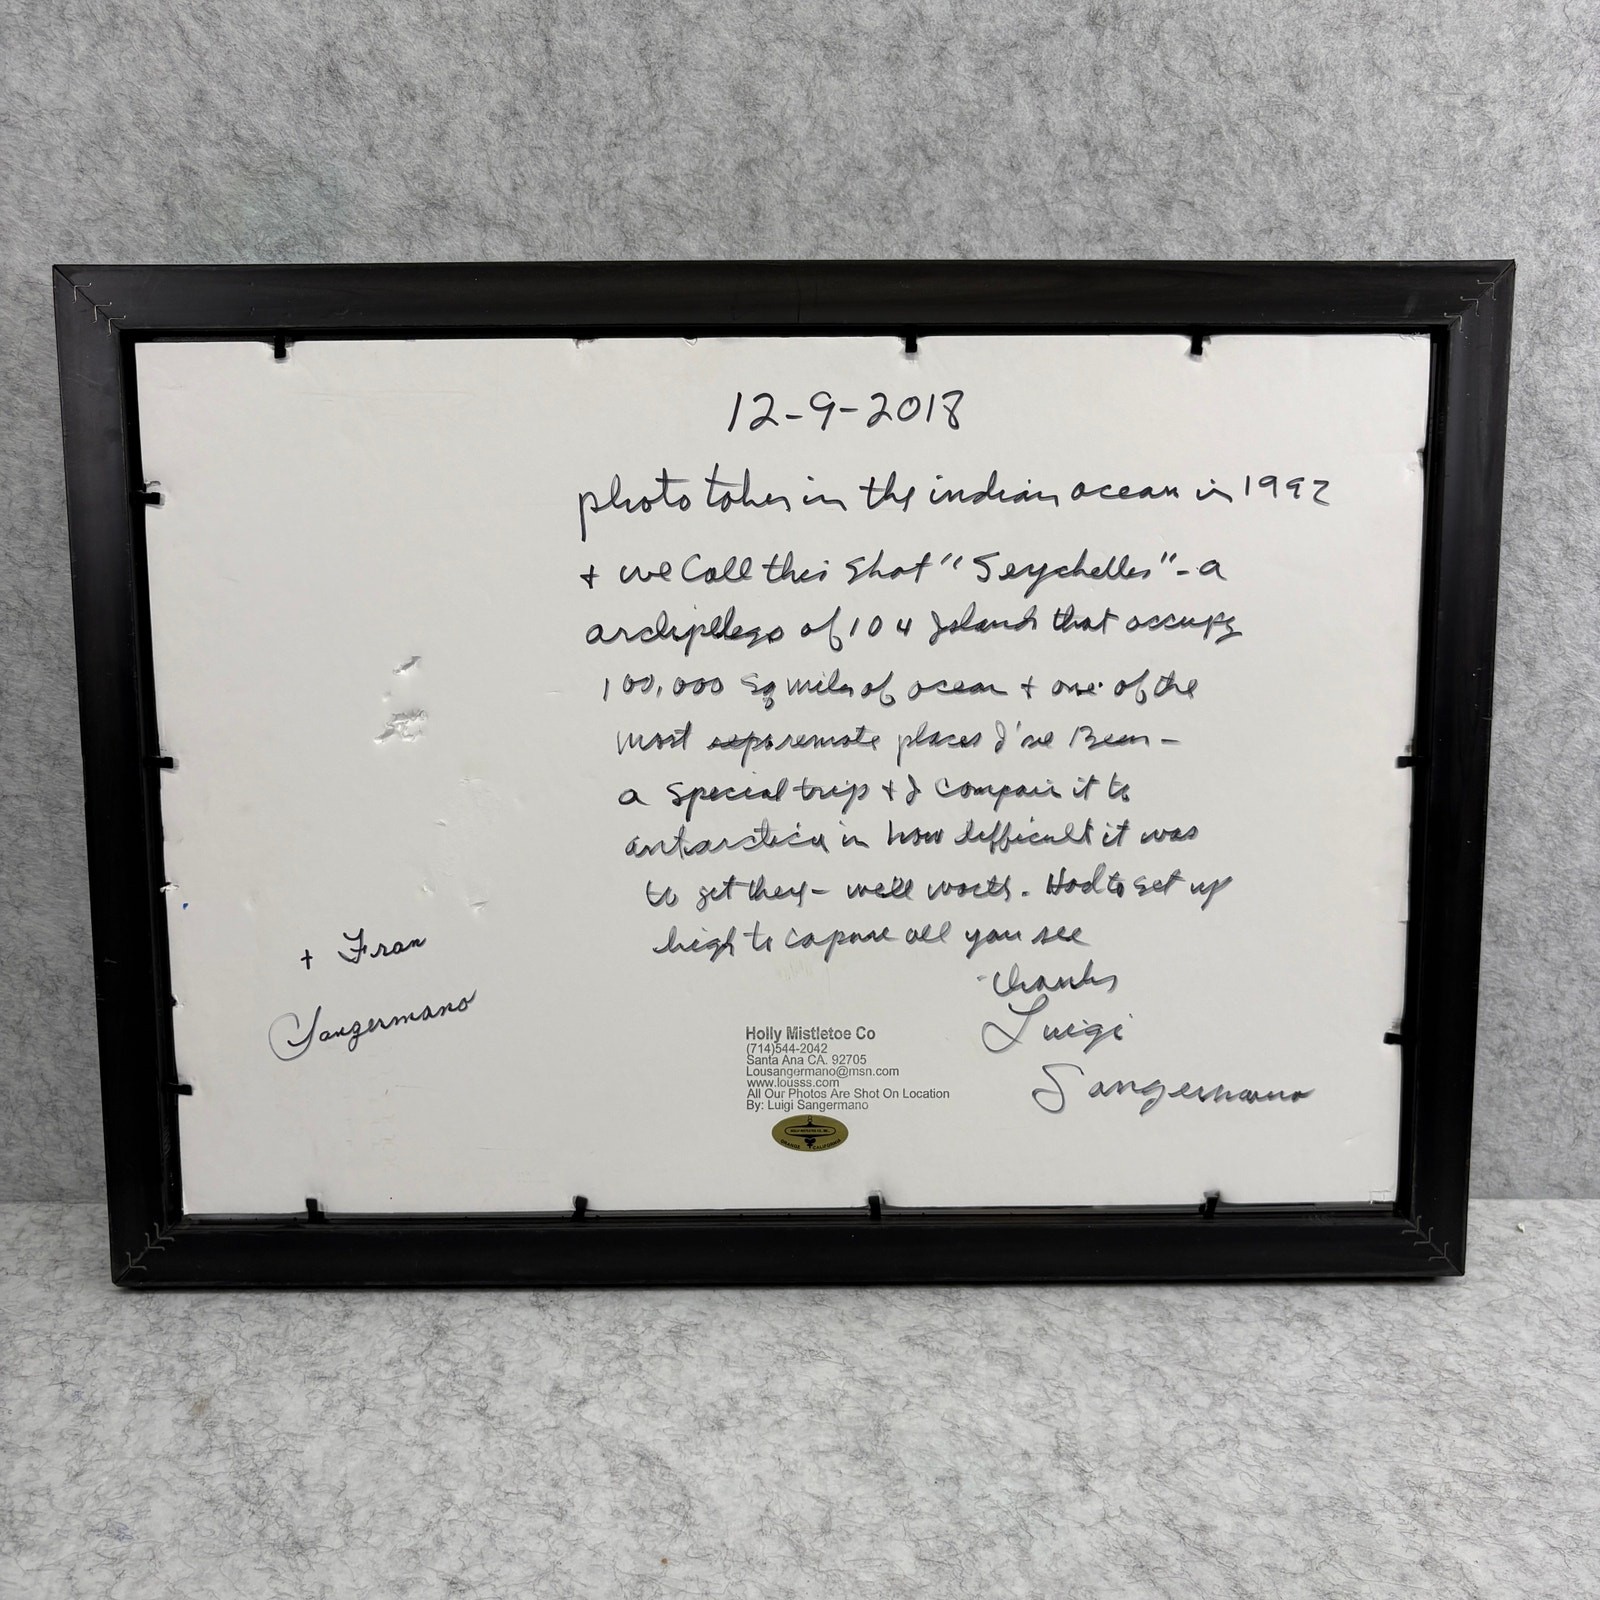 12-9-2018
photo taken in the indian ocean in 1992
+ we Call this shot "Seychelles" - a
archipelego of 104 Islands that occupy
100,000 sq miles of ocean + one of the
most remote places I've Been -
a special trip + I compair it to
antarctica in how difficult it was
to get they - we'll worth. Had to get up
high to capure all you see
thanks
Luigi
Sangermano
+ Fran
Sangermano
Holly Mistletoe Co
(714)544-2042
Santa Ana CA. 92705
Lousangermano@msn.com
www.lousss.com
All Our Photos Are Shot On Location
By: Luigi Sangermano
ORANGE CALIFORNIA